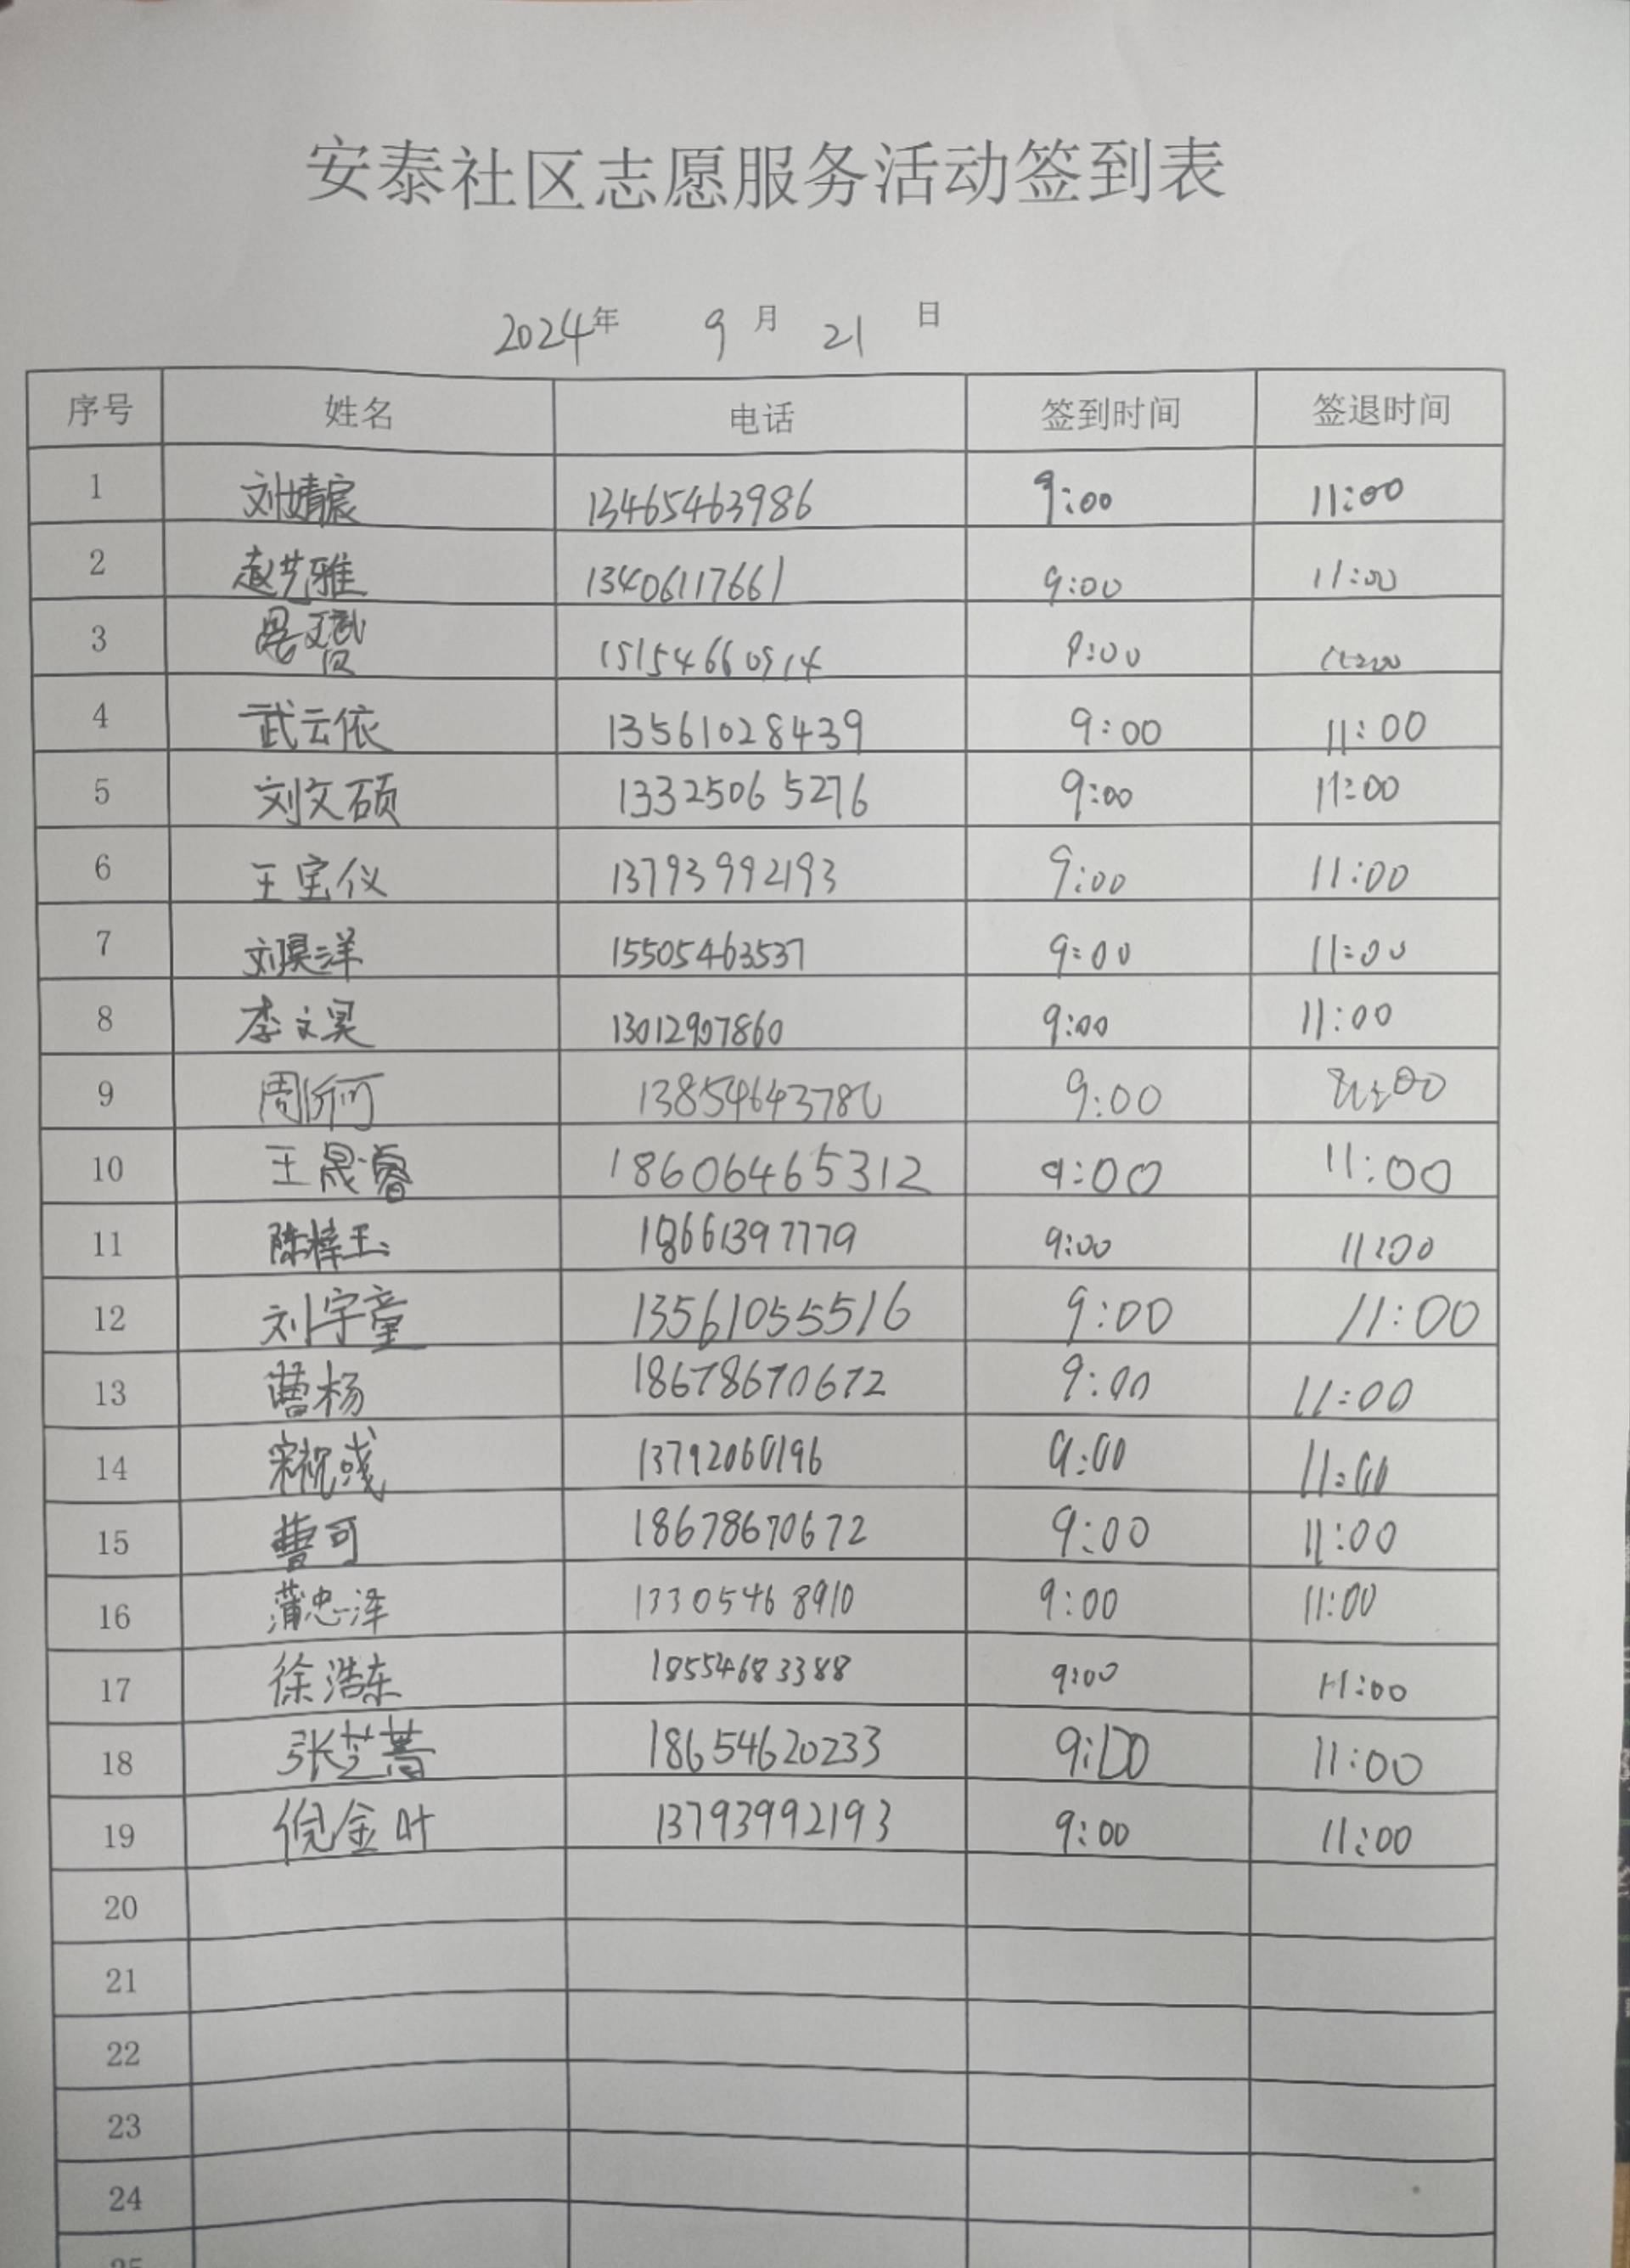 安泰社区志愿服务活动签到表
2024年 9月 21日
序号 姓名 电话 签到时间 签退时间
1 刘婧宸 13465463986 9:00 11:00
2 赵艺雅 13406117661 9:00 11:00
3 15154660914 9:00
4 武云依 13561028439 9:00 11:00
5 刘文硕 13325065276 9:00 11:00
6 王宝仪 13793992193 9:00 11:00
7 刘昊洋 15505463537 9:00 11:00
8 李文昊 13012907860 9:00 11:00
9 周 9:00
10 王晟睿 18606465312 9:00 11:00
11 陈梓玉 18661397779 9:00 11:00
12 刘宇童 13561055516 9:00 11:00
13 曹杨 18678670672 9:00 11:00
14 13792060196 9:00 11:00
15 曹可 18678670672 9:00 11:00
16 蒲忠泽 13305468910 9:00 11:00
17 徐浩东 18554683388 9:00 11:00
18 张芝菁 18654620233 9:00 11:00
19 倪金叶 13793992193 9:00 11:00
20
21
22
23
24